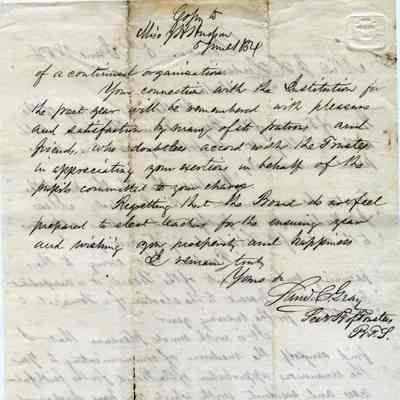 Copy to
Miss
of a continued organisation
Your connection with the Institution for
the past year will be remembered with pleasure
and satisfaction by many of its patrons and
friends, who doubtless accord with the Trustees
in appreciating your exertions in behalf of the
pupils committed to your charge
Regretting that the Board do not feel
prepared to elect teachers for the ensuing year
and wishing you prosperity and happiness
I remain, truly
Yours &
C. Gray
Sec of Trustees